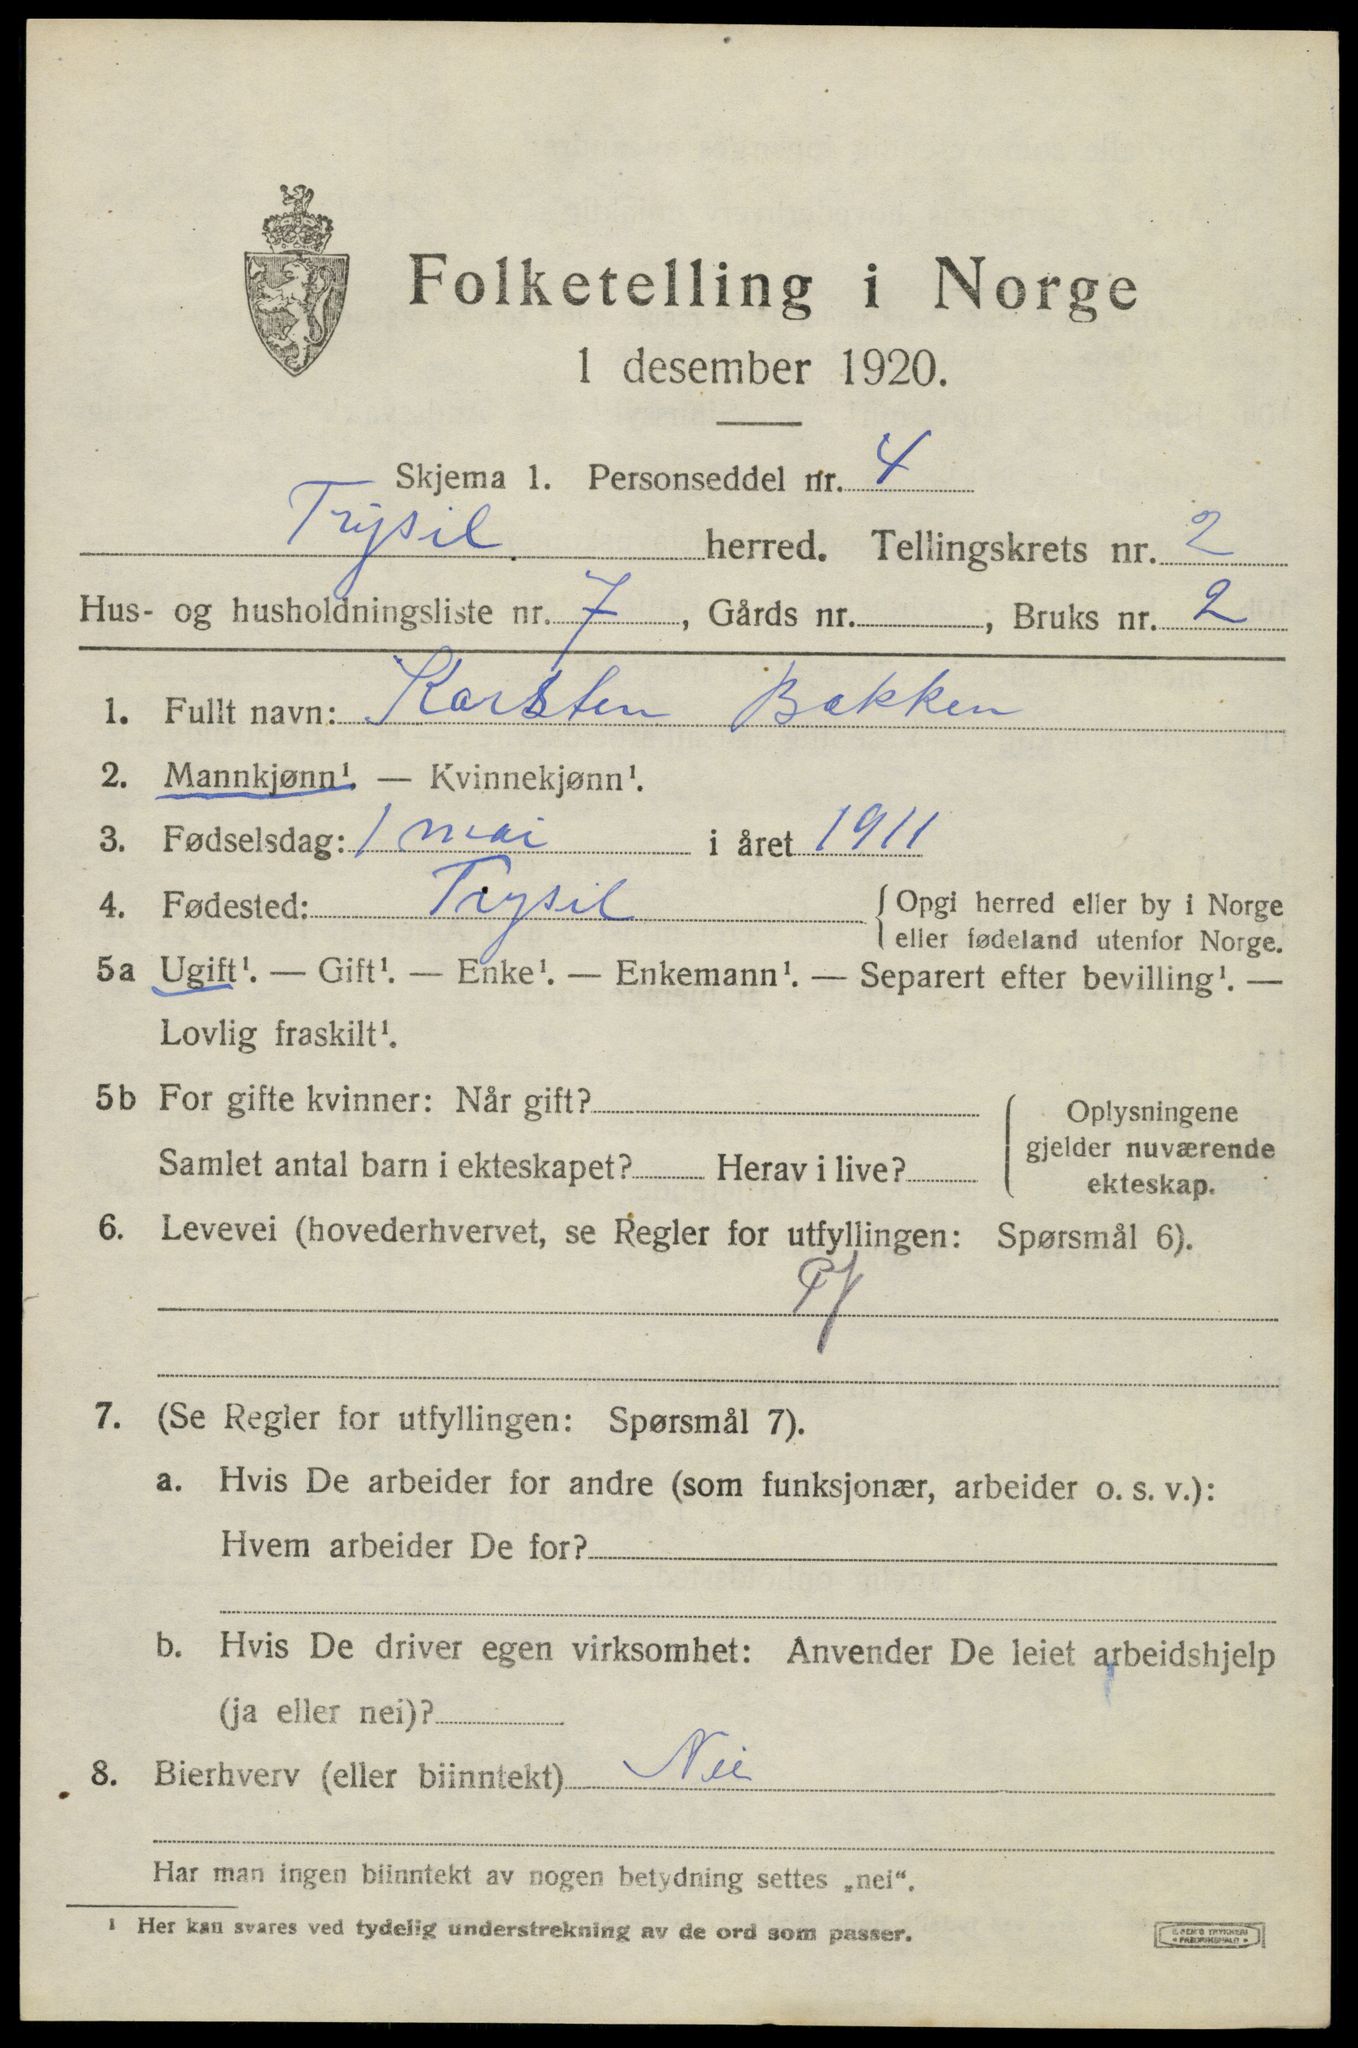 Folketelling i Norge
1 desember 1920.
Skjema 1. Personseddel nr. 4
Trysil herred. Tellingskrets nr. 2
Hus- og husholdningsliste nr. 7, Gårds nr. , Bruks nr. 2
1. Fullt navn: Karsten Bakken
2. Mannkjønn¹. — Kvinnekjønn¹.
3. Fødselsdag: 1 mai i året 1911
4. Fødested: Trysil { Opgi herred eller by i Norge
eller fødeland utenfor Norge.
5a Ugift¹. — Gift¹. — Enke¹. — Enkemann¹. — Separert efter bevilling¹. —
Lovlig fraskilt¹.
5b For gifte kvinner: Når gift?
Samlet antal barn i ekteskapet? Herav i live?
Oplysningene
gjelder nuværende
ekteskap.
6. Levevei (hovederhvervet, se Regler for utfyllingen: Spørsmål 6).
7. (Se Regler for utfyllingen: Spørsmål 7).
a. Hvis De arbeider for andre (som funksjonær, arbeider o. s. v.):
Hvem arbeider De for?
b. Hvis De driver egen virksomhet: Anvender De leiet arbeidshjelp
(ja eller nei)?
8. Bierhverv (eller biinntekt) Nei
Har man ingen biinntekt av nogen betydning settes „nei“.
¹ Her kan svares ved tydelig understrekning av de ord som passer.